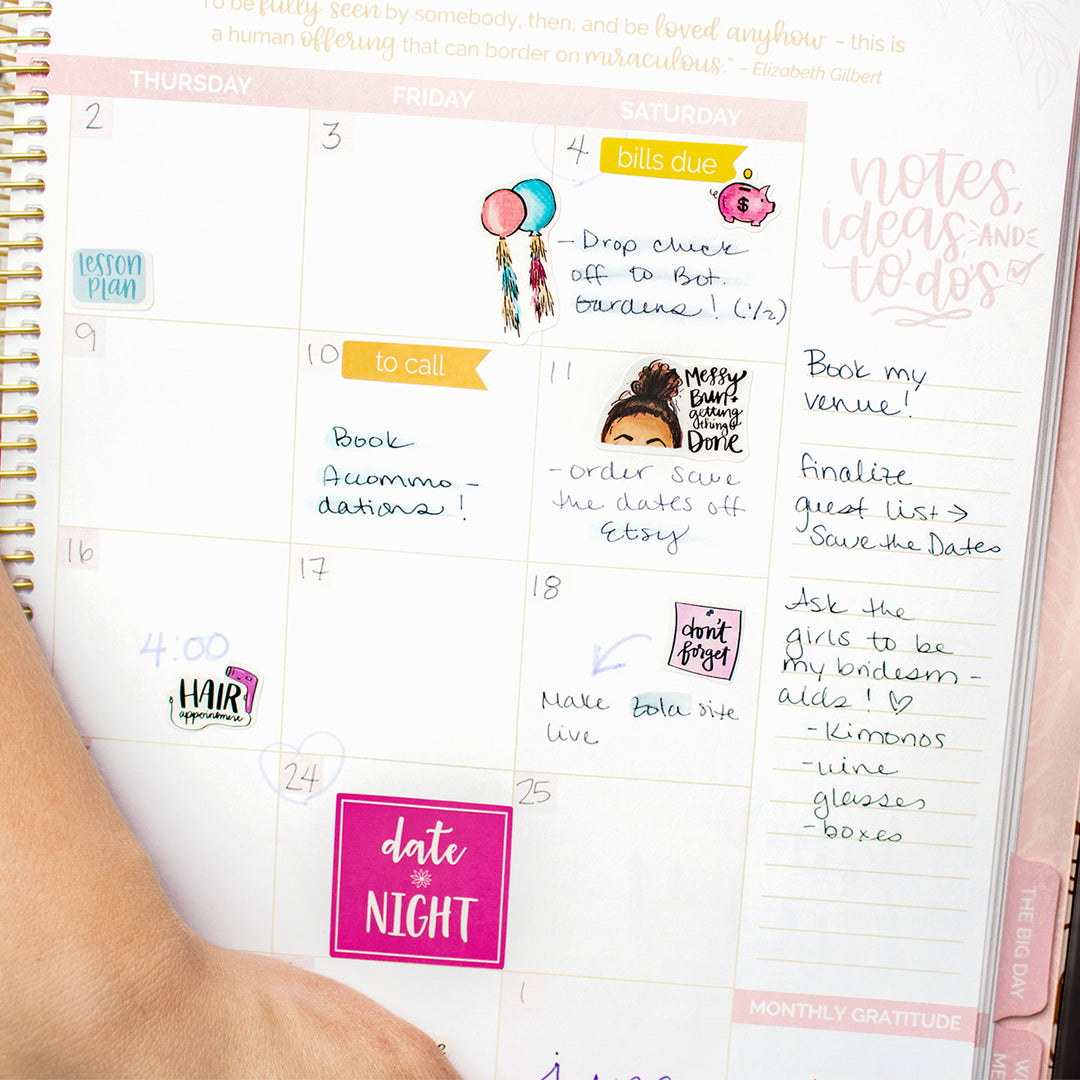 To be fully seen by somebody, then, and be loved anyhow – this is
a human offering that can border on miraculous." – Elizabeth Gilbert
THURSDAY
FRIDAY
SATURDAY
2
lesson
plan
3
4
bills due
$
- Drop check
off to Bot.
Gardens! (1/2)
9
10
to call
Book
Accommo -
dations!
11
Messy
Bun +
getting
things
Done
- order save
the dates off
Etsy
16
4:00
HAIR
appointment
17
18
don't
forget
Make Zola site
live
24
date
NIGHT
25
2
1
notes,
ideas AND
to-do's
Book my
venue!
finalize
guest list →
Save the Dates
Ask the
girls to be
my bridesm -
aids! ♡
- Kimonos
- wine
glasses
- boxes
MONTHLY GRATITUDE
THE BIG DAY